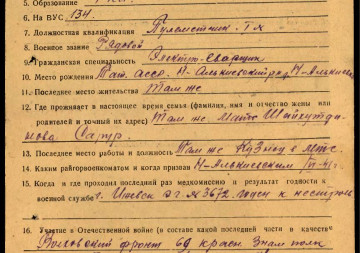 5. Образование
6. На ВУС 134.
7. Должностная квалификация Пулеметчик
8. Военное звание Рядовой
9. Гражданская специальность Электро-Сварщик
10. Место рождения Тат. асср. Н-Алькиевский
11. Последнее место жительства Там же
12. Где проживает в настоящее время семья (фамилия, имя и отчество жены или
родителей и точный их адрес) Там же
13. Последнее место работы и должность Там же Кузнец в МТС.
14. Каким райгорвоенкоматом и когда призван Н-Алькиевским
15. Когда и где проходил последний раз медкомиссию и результат годности в
военной службе г. Ижевск
16. Участие в Отечественной войне (в составе какой последней части, в качестве
Волховский фронт полк